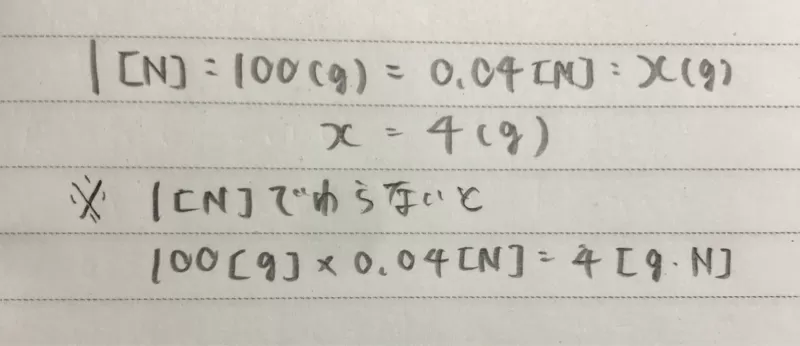 1[N]:100(g) = 0.04[N]:x(g)
x = 4(g)
※ 1[N]でわらないと
100[g]×0.04[N]=4[g·N]